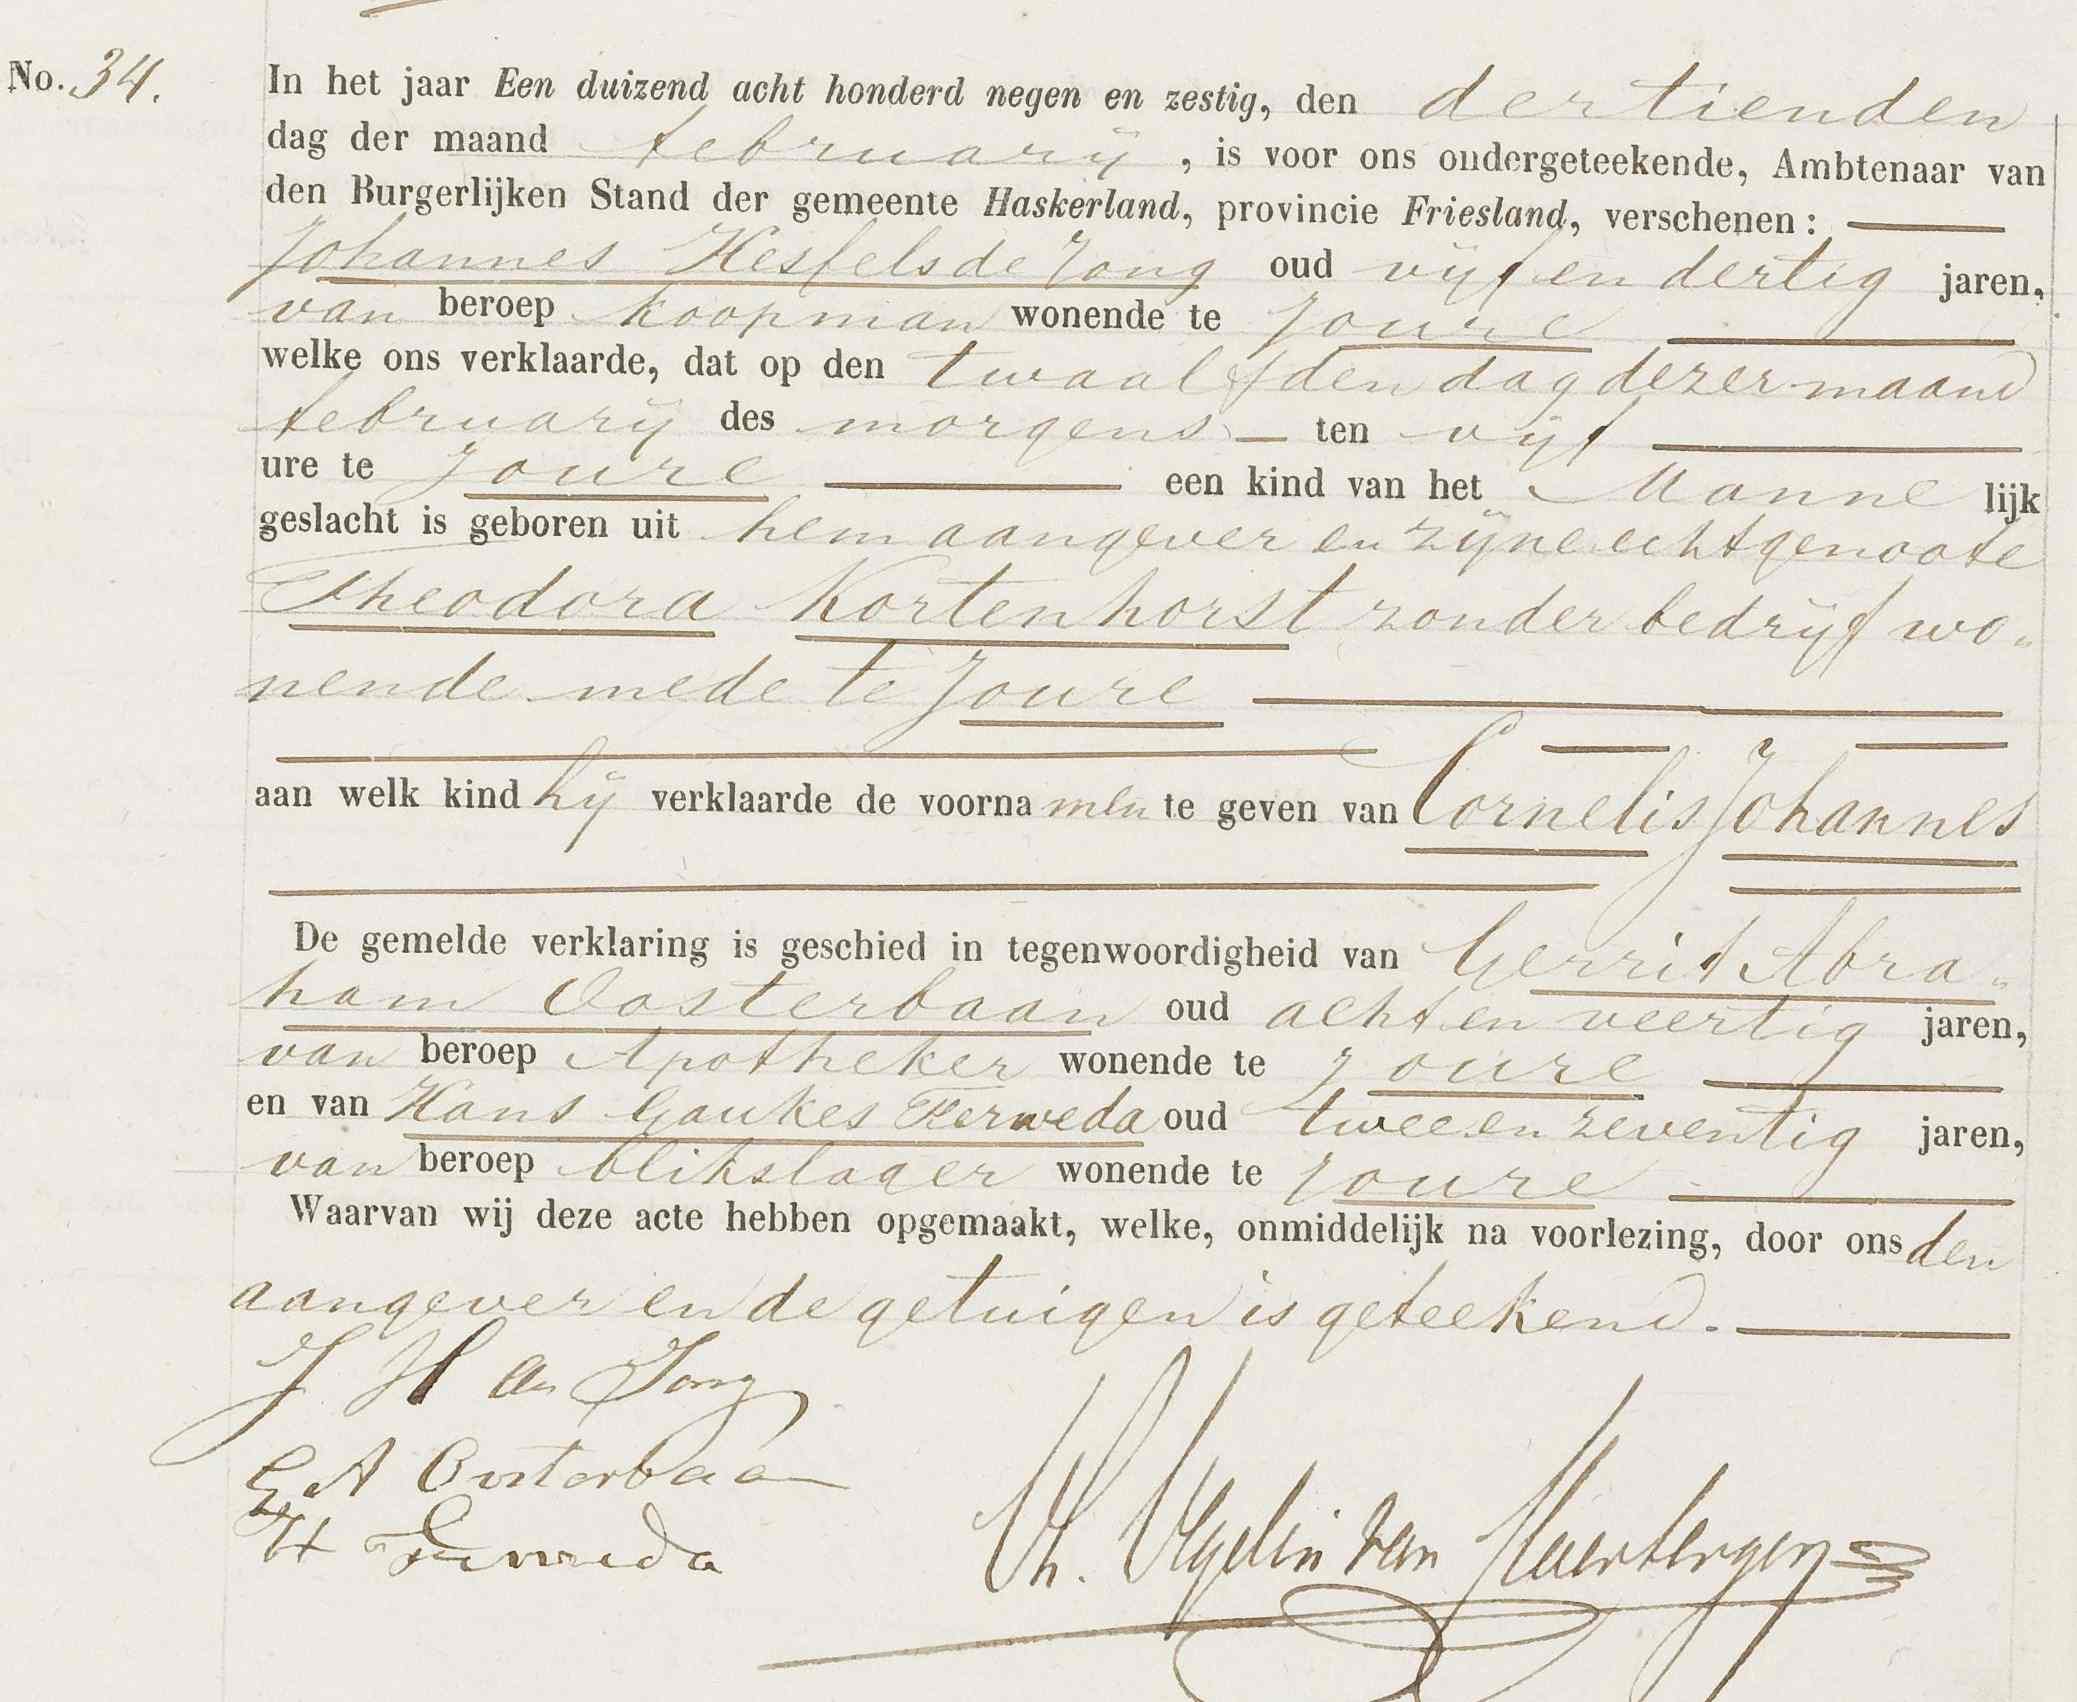 No. 34.
In het jaar Een duizend acht honderd negen en zestig, den dertienden
dag der maand february, is voor ons ondergeteekende, Ambtenaar van
den Burgerlijken Stand der gemeente Haskerland, provincie Friesland, verschenen:
Johannes Hessels de Jong oud vijf en dertig jaren,
van beroep koopman wonende te Joure
welke ons verklaarde, dat op den twaalfden dag dezer maand
february des morgens ten vijf
ure te Joure een kind van het Mannelijk
geslacht is geboren uit hem aangever en zijne echtgenoote
Theodora Kortenhorst zonder bedrijf wo-
nende mede te Joure
aan welk kind hij verklaarde de voornamen te geven van Cornelis Johannes
De gemelde verklaring is geschied in tegenwoordigheid van Gerrit Abra-
ham Oosterbaan oud acht en veertig jaren,
van beroep Apotheker wonende te Joure
en van Hans Gaukes Ferweda oud twee en zeventig jaren,
van beroep blikslager wonende te Joure
Waarvan wij deze acte hebben opgemaakt, welke, onmiddelijk na voorlezing, door ons den
aangever en de getuigen is geteekend.
J H de Jong
G A Oosterbaan
H G Ferweda
Vegelin van Claerbergen